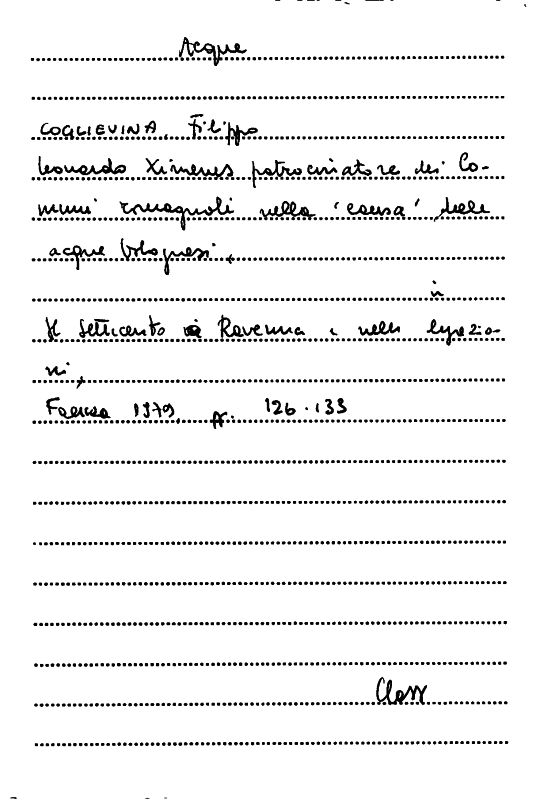 Acque
COGLIEVINA, Filippo
Leonardo Ximenes patrocinatore dei Co-
muni romagnoli nella 'causa' delle
acque bolognesi,
in
Il Settecento a Ravenna e nelle legazio-
ni,
Faenza 1979, pp. 126-133
Class